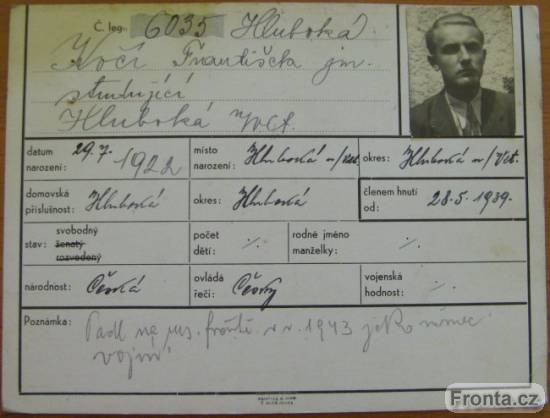 Č. leg. 6035 Hluboká
Kočí Františka jm.
studující
Hluboká n/Vlt.
datum narození: 29.7. 1922 místo narození: Hluboká n/Vlt. okres: Hluboká n/Vlt.
domovská příslušnost: Hluboká okres: Hluboká členem hnutí od: 28.5.1939.
stav: svobodný ženatý rozvedený počet dětí: ·/· rodné jméno manželky: ·/·
národnost: Česká ovládá řeči: Česky vojenská hodnost: ·/·
Poznámka: Padl na rus. frontě v r. 1943 jako němec.
vojín
Fronta.cz